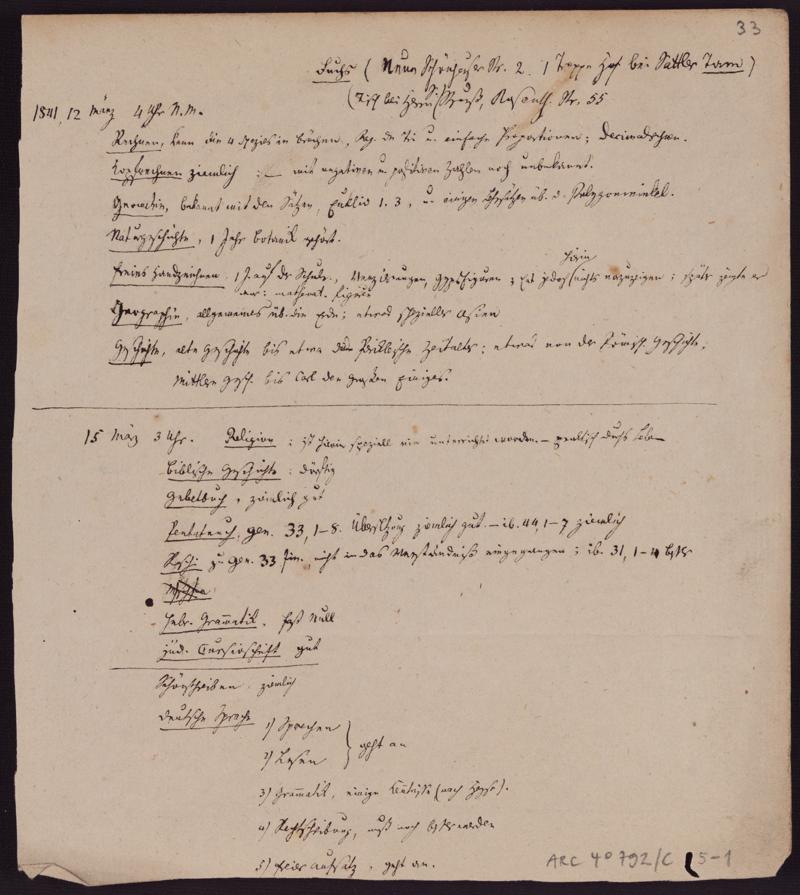 33
Fuchs (Neue Schönhauser Str. 2. 1 Treppe Hof bei Sattler Tarn)
(Tisch bei Herrn Strauß, Rosenth. Str. 55
1841, 12 März 4 Uhr N.M.
Rechnen, kann die 4 Spezies in Brüchen, Reg. de Tri u. einfache Proportionen; Decimalrechn.
Kopfrechnen ziemlich ; — mit negativen u. positiven Zahlen noch unbekannt.
Geometrie, bekannt mit den Sätzen, Euklid 1. 3, u. einigen Lehrsätzen üb. d. Polygonwinkel.
Naturgeschichte, 1 Jahr Botanik gehört.
hierin
freies Handzeichnen, 1 J. auf der Schule, Verzierungen, Gypsfiguren ; hat jedoch nichts vorzuzeigen ; später zeigte er
mathemat. Figuren
Geographie, allgemeines üb. die Erde; etwas spezieller Asien
Geschichte, alte Geschichte bis etwa das Periklische Zeitalter; etwas von der Römisch. Geschichte;
mittlere Gesch. bis Carl den Großen Einiges.
15 März 3 Uhr. Religion : ist hierin speziell nie unterrichtet worden. — praktisch durchs Leben
Biblische Geschichte : dürftig
Gebetbuch, ziemlich gut
Pentateuch, Gen. 33, 1–8. Übersetzung ziemlich gut. — ib. 44, 1–7 ziemlich
Raschi zu Gen. 33 fin. nicht in das Verständniß eingegangen ; ib. 31, 1–4 besser
Hebr. Grammatik. fast Null
jüd. Cursivschrift gut
Schönschreiben. ziemlich
Deutsche Sprache 1) Sprechen
2) Lesen } geht an
3) Grammatik, einige Kenntnisse (nach Heyse).
4) Rechtschreibung, muß noch besser werden
5) freier Aufsatz, geht an.
ARC 4° 792/C 5-1